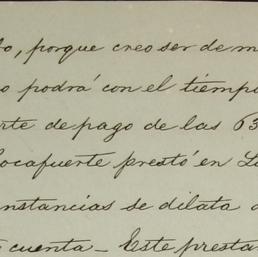 to, porque creo ser de m
o podrá con el tiemp
rte de pago de las 63
ocafuerte prestó en L
nstancias se dilata
cuenta — Este presta